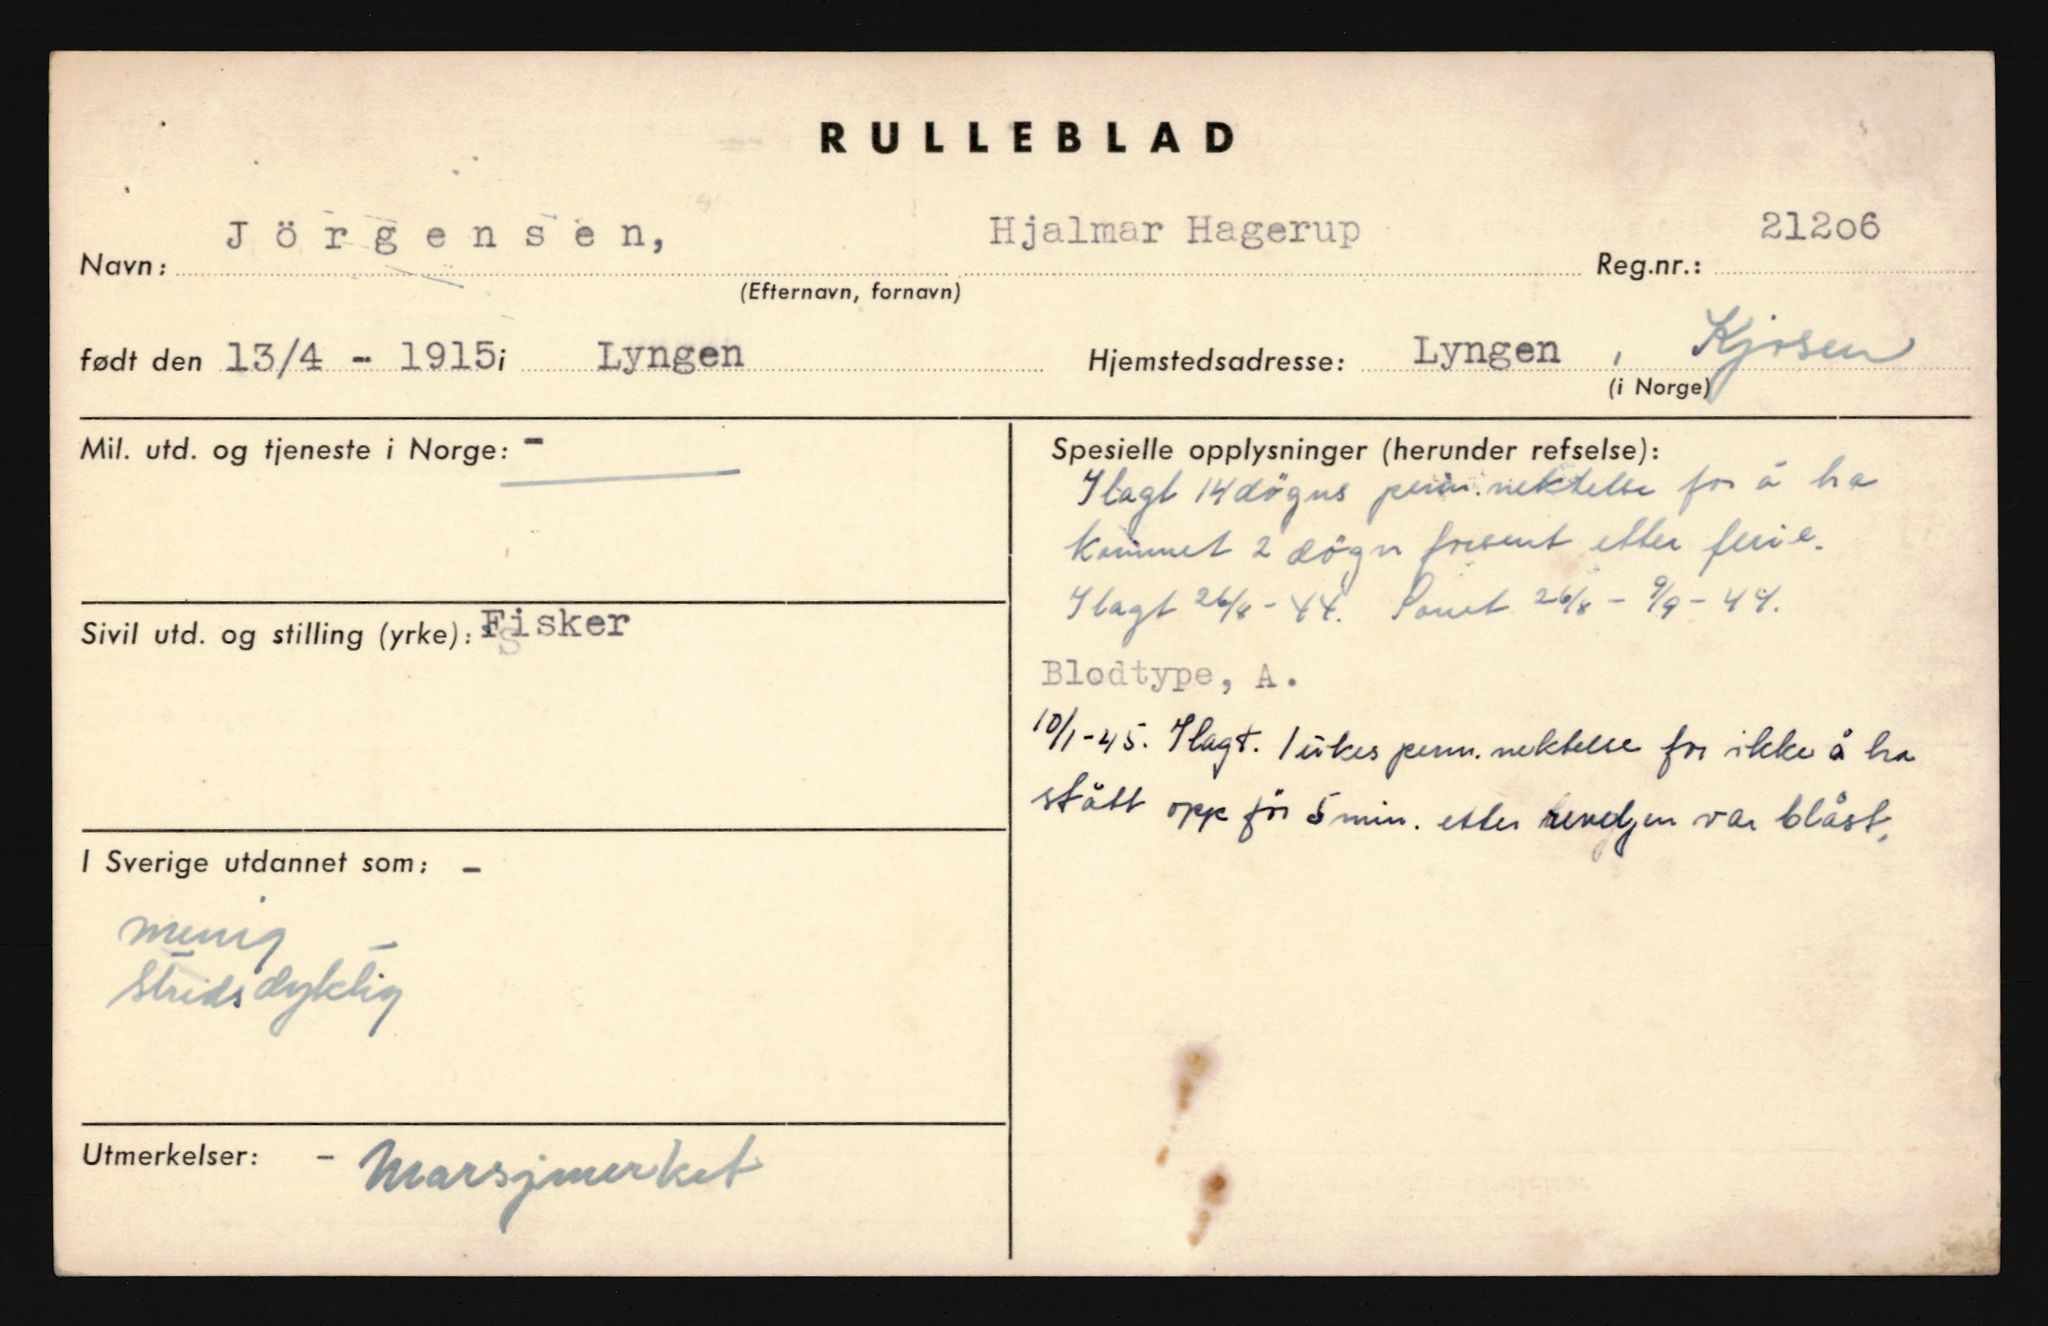 RULLEBLAD
Navn: Jörgensen, Hjalmar Hagerup Reg.nr.: 212o6
(Efternavn, fornavn)
født den 13/4 - 1915 i Lyngen Hjemstedsadresse: Lyngen, Kjosen
(i Norge)
Mil. utd. og tjeneste i Norge: -
Sivil utd. og stilling (yrke): Fisker
I Sverige utdannet som: -
menig
stridsdyktig
Utmerkelser: - Marsjmerket
Spesielle opplysninger (herunder refselse):
Ilagt 14 døgns perm. nektelse for å ha
kommet 2 døgn forsent etter ferie.
Ilagt 26/8 - 44. Sonet 26/8 - 9/9 - 44.
Blodtype, A.
10/1-45. Ilagt. 1 ukes perm. nektelse for ikke å ha
stått opp før 5 min. etter reveljen var blåst.